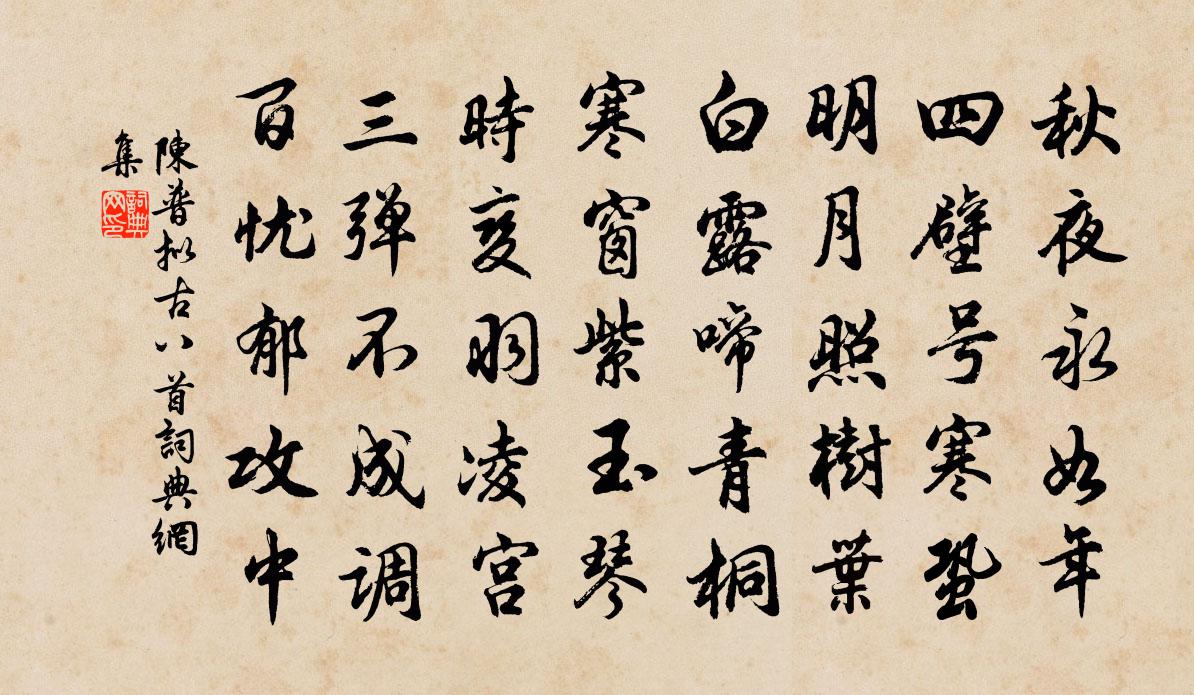 秋夜永如年
四壁号寒蛩
明月照樹葉
白露啼青桐
寒窗紫玉琴
時变羽凌宫
三弹不成调
百忧郁攻中
陳普拟古八首詞典網
集
詞典
网印